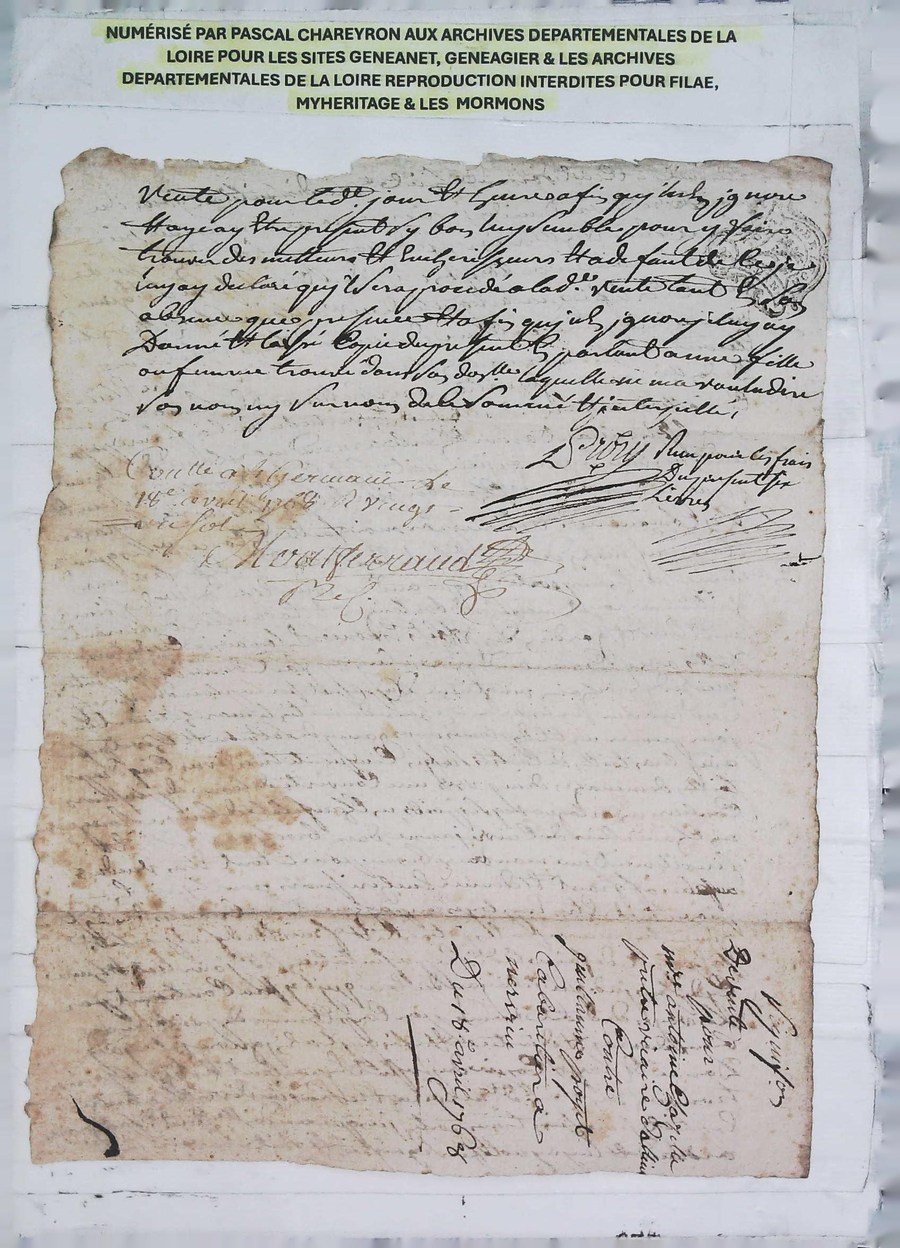 NUMÉRISÉ PAR PASCAL CHAREYRON AUX ARCHIVES DEPARTEMENTALES DE LA
LOIRE POUR LES SITES GENEANET, GENEAGIER & LES ARCHIVES
DEPARTEMENTALES DE LA LOIRE REPRODUCTION INTERDITES POUR FILAE,
MYHERITAGE & LES MORMONS
Vente pour led. jour et heure afin qu'il n'en ignore
et aye a y etre present sy bon luy semble pour y faire
trouver des metteurs et encherisseurs et a defaut de ce je
luy ay declaré qu'il sera procedé a lad.te vente tant en son
absence que presence et afin qu'il n'en ignore je luy ay
Donné et laissé copie du present en parlant a une fille
ou femme trouvée dans son d. laquelle ne ma voulu dire
son nom ny surnom de ce sommé et interpellé,
Reçu pour les frais
Du present six
Livres
Conllé a St Germain le
18e avril 1768 R vingt
un sol
Montferraud
Exploit
De suite
pour
mre antoine
pretre vicaire
Contre
guillaume poyet
Cabaretier a
Du 18e avril 1768